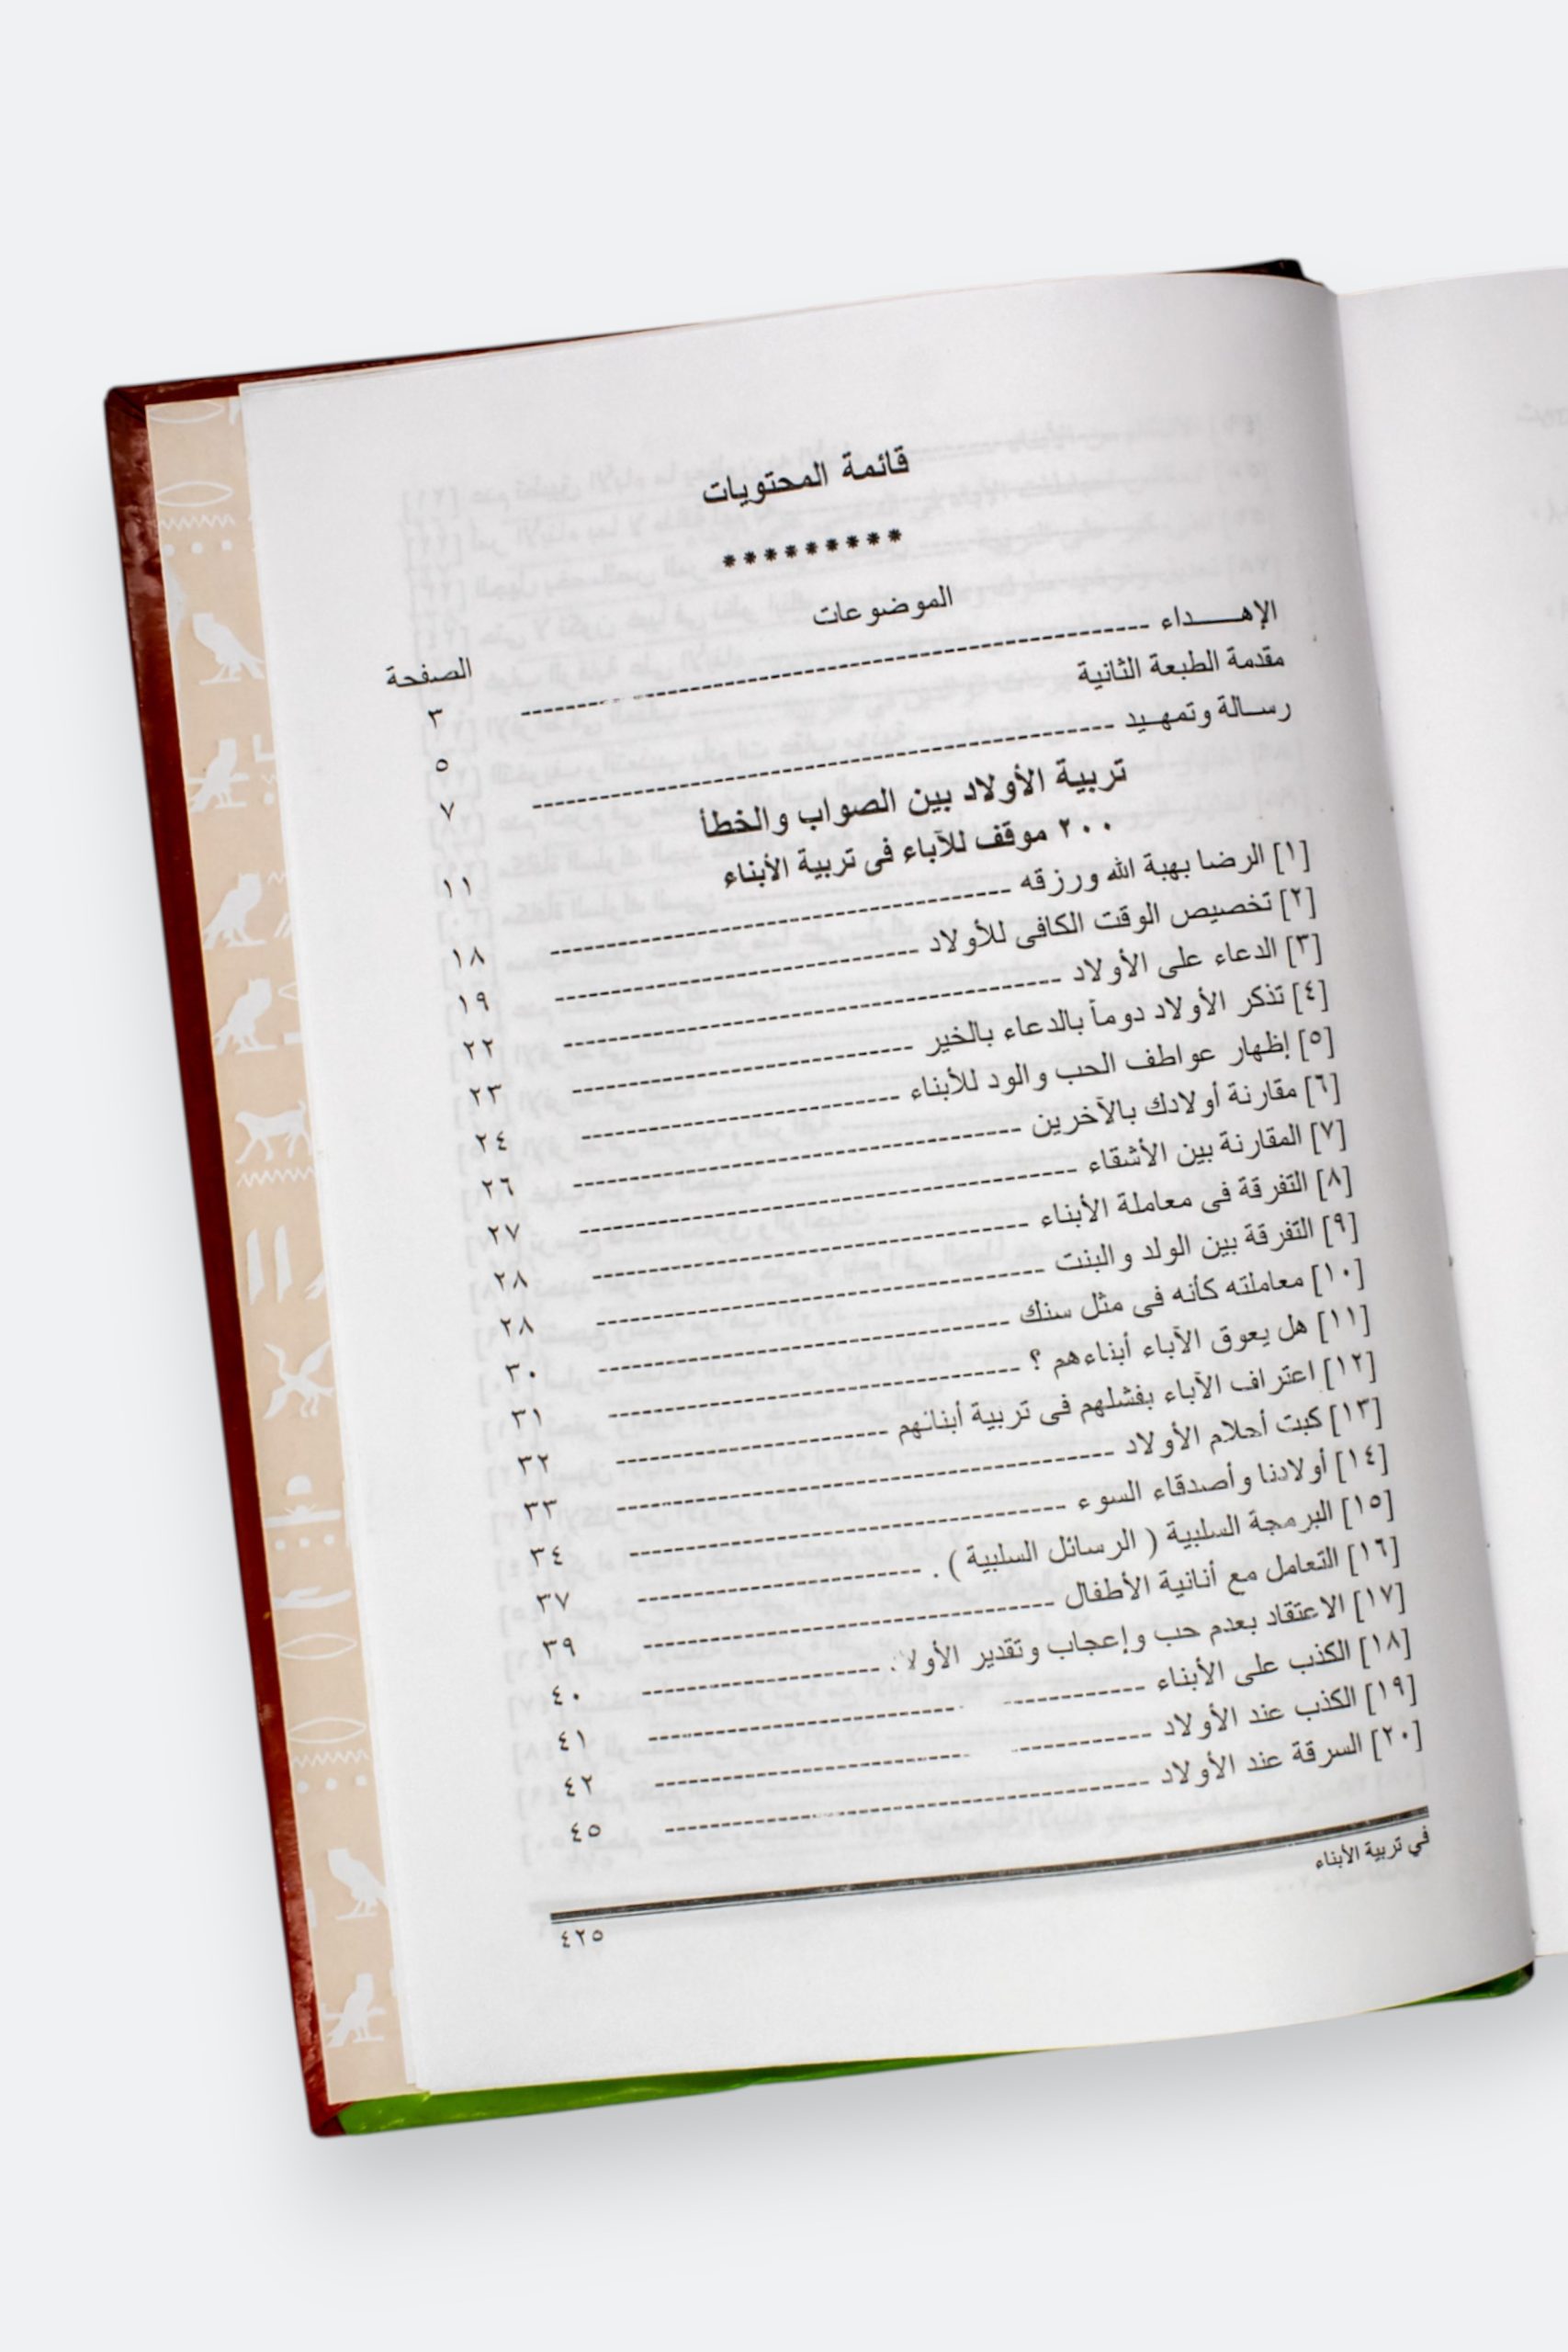 قائمة المحتويات
*********
الموضوعات الصفحة
الإهـــداء ---------- ٣
مقدمة الطبعة الثانية ٥
رسـالة وتمهـيد ---------- ٧
تربية الأولاد بين الصواب والخطأ ١١
٢٠٠ موقف للآباء فى تربية الأبناء
[١] الرضا بهبة الله ورزقه ---------- ١٨
[٢] تخصيص الوقت الكافى للأولاد ---------- ١٩
[٣] الدعاء على الأولاد ---------- ٢٢
[٤] تذكر الأولاد دوماً بالدعاء بالخير ---------- ٢٣
[٥] إظهار عواطف الحب والود للأبناء ---------- ٢٤
[٦] مقارنة أولادك بالآخرين ---------- ٢٦
[٧] المقارنة بين الأشقاء ---------- ٢٧
[٨] التفرقة فى معاملة الأبناء ---------- ٢٨
[٩] التفرقة بين الولد والبنت ---------- ٢٨
[١٠] معاملته كأنه فى مثل سنك ---------- ٣٠
[١١] هل يعوق الآباء أبناءهم ؟ ---------- ٣١
[١٢] اعتراف الآباء بفشلهم فى تربية أبنائهم ---------- ٣٢
[١٣] كبت أحلام الأولاد ---------- ٣٣
[١٤] أولادنا وأصدقاء السوء ---------- ٣٤
[١٥] البرمجة السلبية ( الرسائل السلبية ) . ---------- ٣٧
[١٦] التعامل مع أنانية الأطفال ---------- ٣٩
[١٧] الاعتقاد بعدم حب وإعجاب وتقدير ---------- ٤٠
[١٨] الكذب على الأبناء ---------- ٤١
[١٩] الكذب عند الأولاد ---------- ٤٢
[٢٠] السرقة عند الأولاد ---------- ٤٥
في تربية الأبناء
٤٢٥